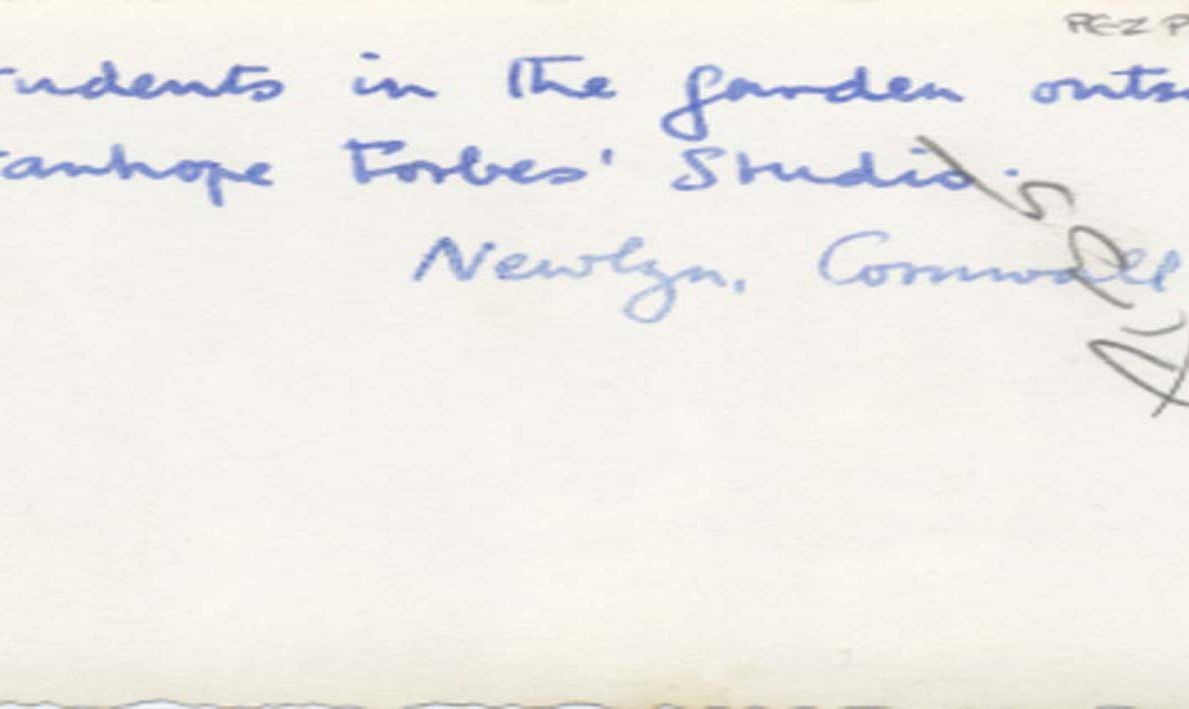 PEZ P
tudents in the garden outs
tanhope Forbes' Studio.
Newlyn, Cornwall